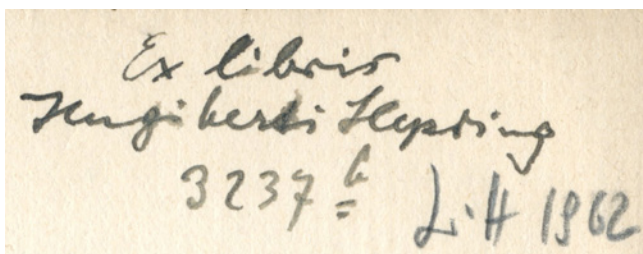 Ex libris
Hugiberti Hepding
3237 b L. H 1962